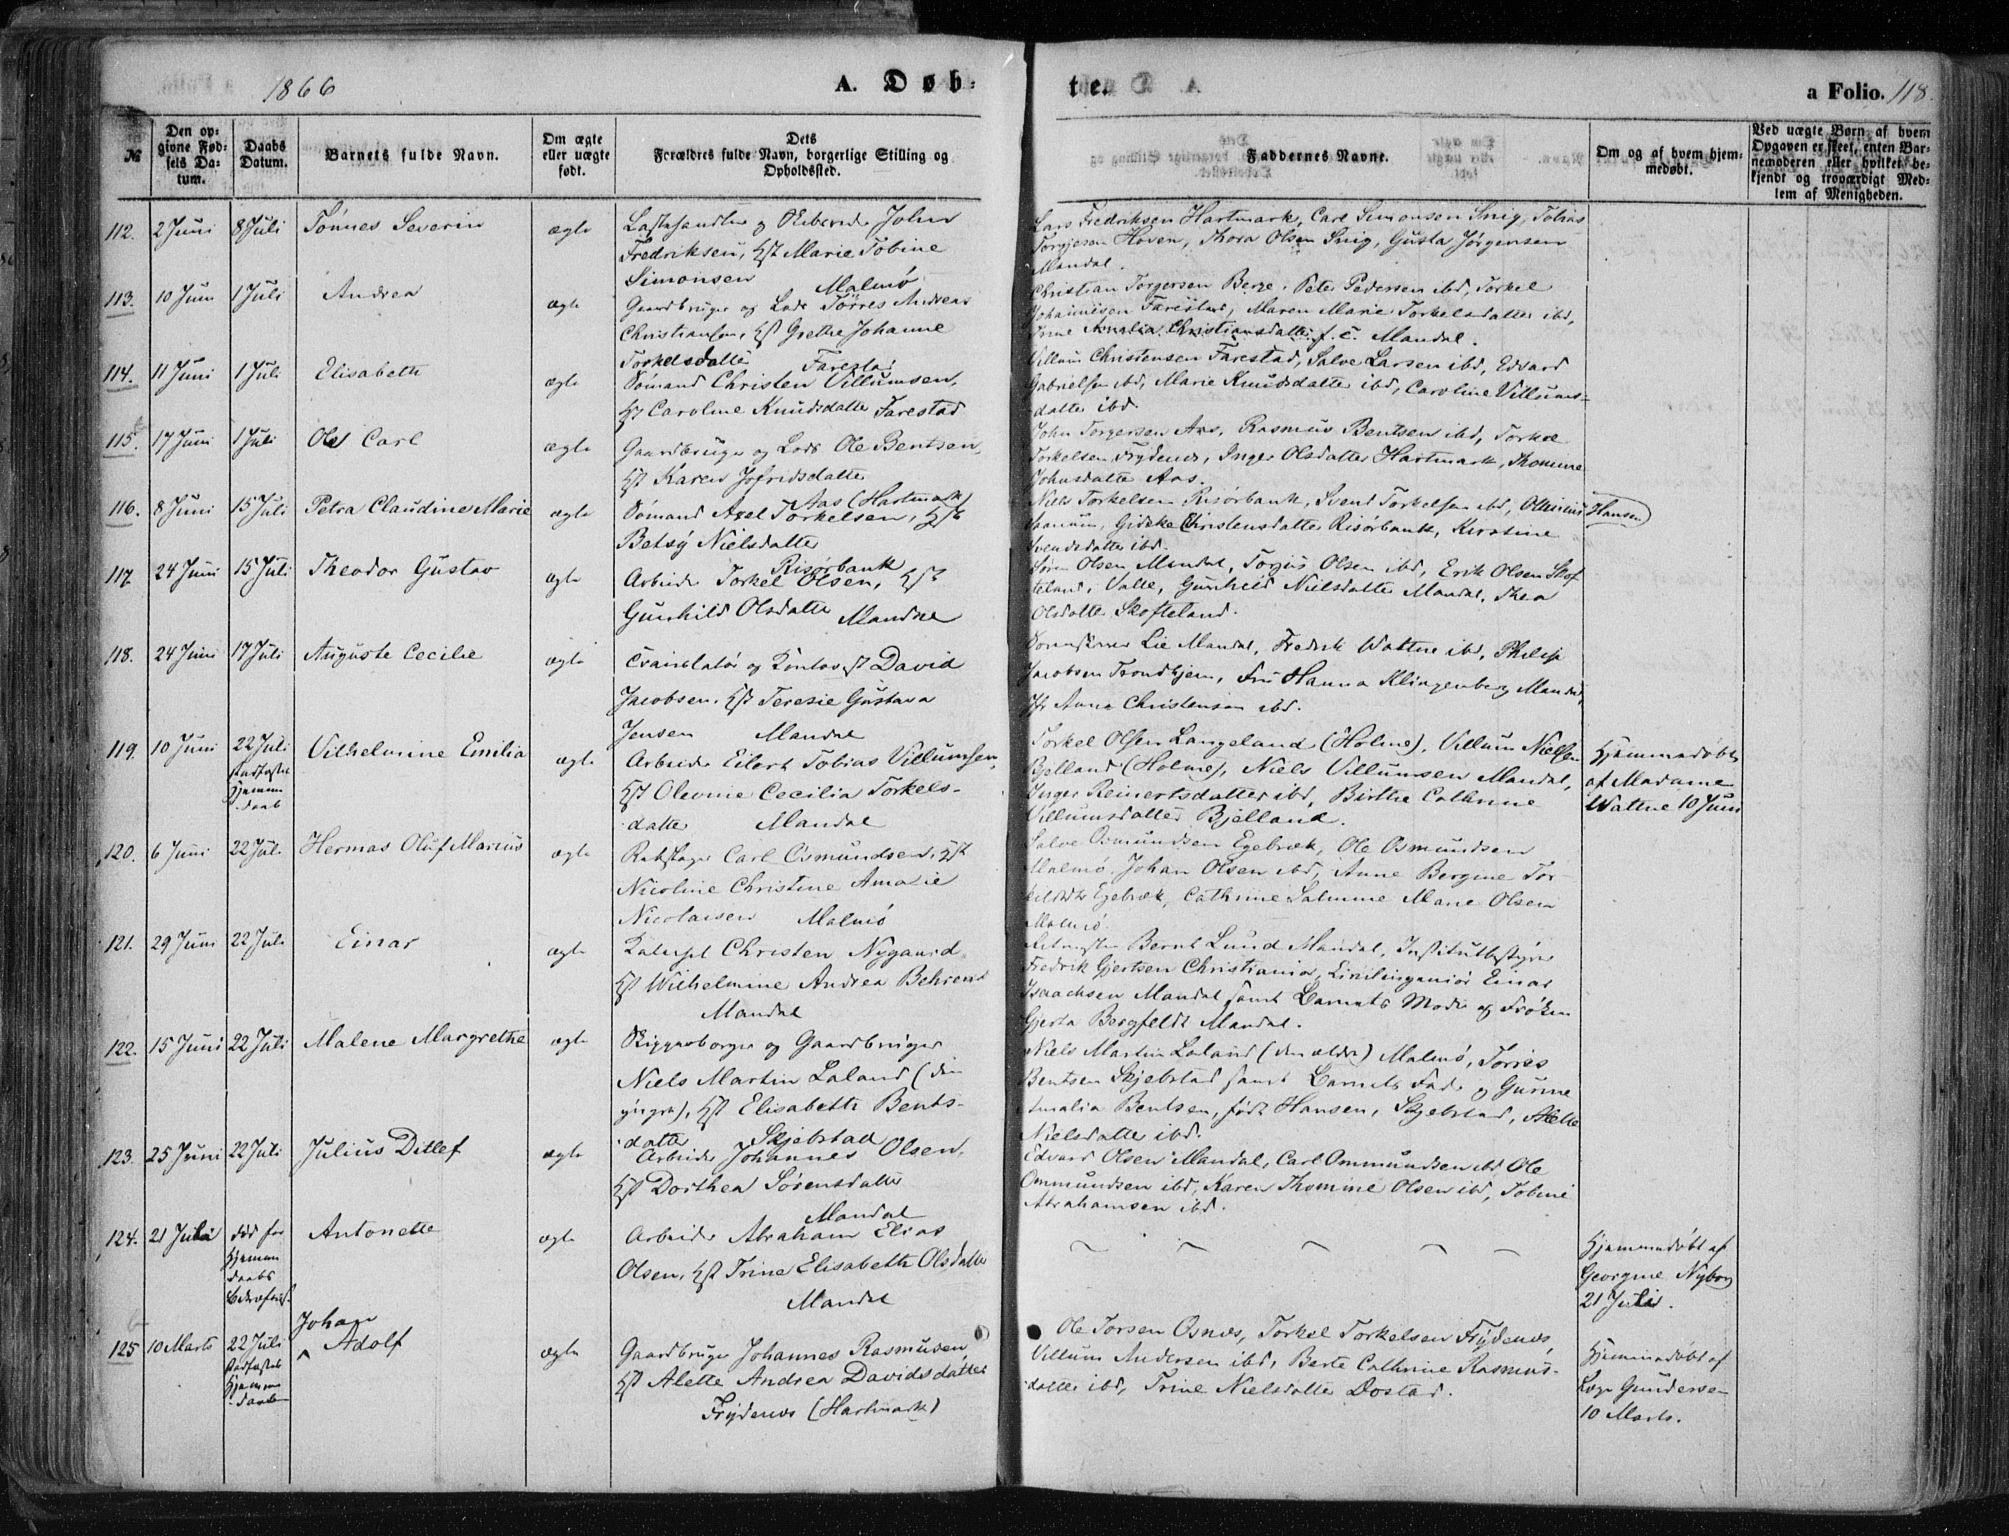 1866
A. Døb-
te.
a Folio. 118.
№
Den op-
givne Fød-
sels Da-
tum.
Daabs
Datum.
Barnets fulde Navn.
Om ægte
eller uægte
født.
Dets
Forældres fulde Navn, borgerlige Stilling og
Opholdssted.
Faddernes Navne.
Om og af hvem hjem-
medøbt.
Ved uægte Børn af hvem
Opgaven er skeet, enten Bar-
nemoderen eller hvilket be-
kjendt og troværdigt Med-
lem af Menigheden.
112. 2 Juni 8 Juli Tønnes Severin ægte
Lastehandler og John
Fredriksen, Hst Marie Tobine
Simonsen Malmø
Lars Fredriksen Hartmark, Carl Simonsen Snig, Tobias
Torgjesen Hoven, Thora Olsen Snig, Gusta Jørgensen
Mandal.
113. 10 Juni 1 Juli Andrea ægte
Gaardbruger og Lods Tørres Andreas
Christiansen, Hst Grethe Johanne
Torkelsdatter Farestad
Christian Torgersen Berge, Peter Pedersen ibd, Torkel
Johannesen Farestad, Maren Marie Torkelsdatter ibd,
Trine Amalia Christiansdatter f. C. Mandal.
114. 11 Juni 1 Juli Elisabeth ægte
Sømand Christen Villumsen,
Hst Caroline Knudsdatter Farestad
Villum Christensen Farestad, Salve Larsen ibd, Edvard
Gabrielsen ibd, Marie Knudsdatter ibd, Caroline Villums-
datter ibd.
115. 17 Juni 1 Juli Ole Carl ægte
Gaardbruger og Lods Ole Bentsen,
Hst Karen Jofridsdatter
Aas (Hartmark)
John Torgersen Aas, Rasmus Bentsen ibd, Torkel
Torkelsen Frydenes, Inger Olsdatter Hartmark, Thomine
Johnsdatter Aas.
116. 8 Juni 15 Juli Petra Claudine Marie ægte
Sømand Axel Torkelsen, Hst
Betsy Nielsdatter
Risørbank
Niels Torkelsen Risørbank, Svend Torkelsen ibd, (Hansen)
Gidske Christensdatter Risørbank, Kirstine
Svendsdatter ibd.
117. 24 Juni 15 Juli Theodor Gustav ægte
Arbeider Torkel Olsen, Hst
Gunhild Olsdatter Mandal
Søren Olsen Mandal, Torjus Olsen ibd, Erik Olsen Skof-
teland, Valle, Gunhild Nielsdatter Mandal, Thea
Olsdatter Skofteland.
118. 24 Juni 17 Juli Auguste Cecilie ægte
Translatør og Kontorist David
Jacobsen, Hst Teresie Gustava
Jensen Mandal
Lie Mandal, Fredrik Wattne ibd, Philip
Jacobsen Trondhjem, Fru Hanna Klingenberg Mandal,
Anna Christensen ibd.
119. 10 Juni 22 Juli
Stadfæstet
Hjemme
daab
Vilhelmine Emilia ægte
Arbeider Eilert Tobias Villumsen,
Hst Olevine Cecilia Torkels-
datter Mandal
Torkel Olsen Langeland (Holme), Villum Nielsen
Bjelland (Holme), Niels Villumsen Mandal,
Inger Reinertsdatter ibd, Birthe Cathrine
Villumsdatter Bjelland.
Hjemmedøbt
af Madame
Wattne 10 Juni
120. 6 Juni 22 Juli Hermas Oluf Marius ægte
Rebslager Carl Osmundsen, Hst
Nicoline Christine Amalie
Nicolaisen Malmø
Salve Osmundsen Egebræk, Ole Osmundsen
Malmø, Johan Olsen ibd, Anne Bergine Tor-
Egebræk, Cathrine Salmine Marie Olsen
Malmø
121. 29 Juni 22 Juli Einar ægte
Christen Nygaard,
Hst Wilhelmine Andrea Behrens
Mandal
Bernt Lund Mandal, Institutbestyrer
Fredrik Gjertsen Christiania, Civilingeniør Einar
Isaachsen Mandal samt Barnets Moder og Frøken
Gjerta Bergfeldt Mandal.
122. 15 Juni 22 Juli Malene Margrethe ægte
Skipperborger og Gaardbruger
Niels Martin Laland (den
yngre), Hst Elisabeth Bents-
datter Skjebstad
Niels Martin Laland (den ældre) Malmø, Torries
Bentsen Skjebstad samt Barnets Fader og Gunine
Amalia Bentsen, født Hansen, Skjebstad, Alette
Nielsdatter ibd.
123. 25 Juni 22 Juli Julius Ditlef ægte
Arbeider Johannes Olsen,
Hst Dorthea Sørensdatter
Mandal
Edvard Olsen Mandal, Carl Ommundsen ibd Ole
Ommundsen ibd, Karen Thomine Olsen ibd, Tobine
Abrahamsen ibd.
124. 21 Juli død før
Hjemme
daabs
Bekræftels.
Antonette ægte
Arbeider Abraham Elias
Olsen, Hst Trine Elisabeth Olsdatter
Mandal
Hjemmedøbt af
Georgine Nyborg
21 Juli.
125 10 Marts 22 Juli
Stadfæstet
Hjemme
daab
Johan
Adolf ægte
Gaardbruger Johannes Rasmusen,
Hst Alette Andrea Davidsdatter
Frydenes (Hartmark)
Ole Torsen Osnes, Torkel Torkelsen Frydenes,
Villum Andersen ibd, Berte Cathrine Rasmus-
datter ibd, Trine Nielsdatter Dostad.
Hjemmedøbt af
Gundersen
10 Marts.